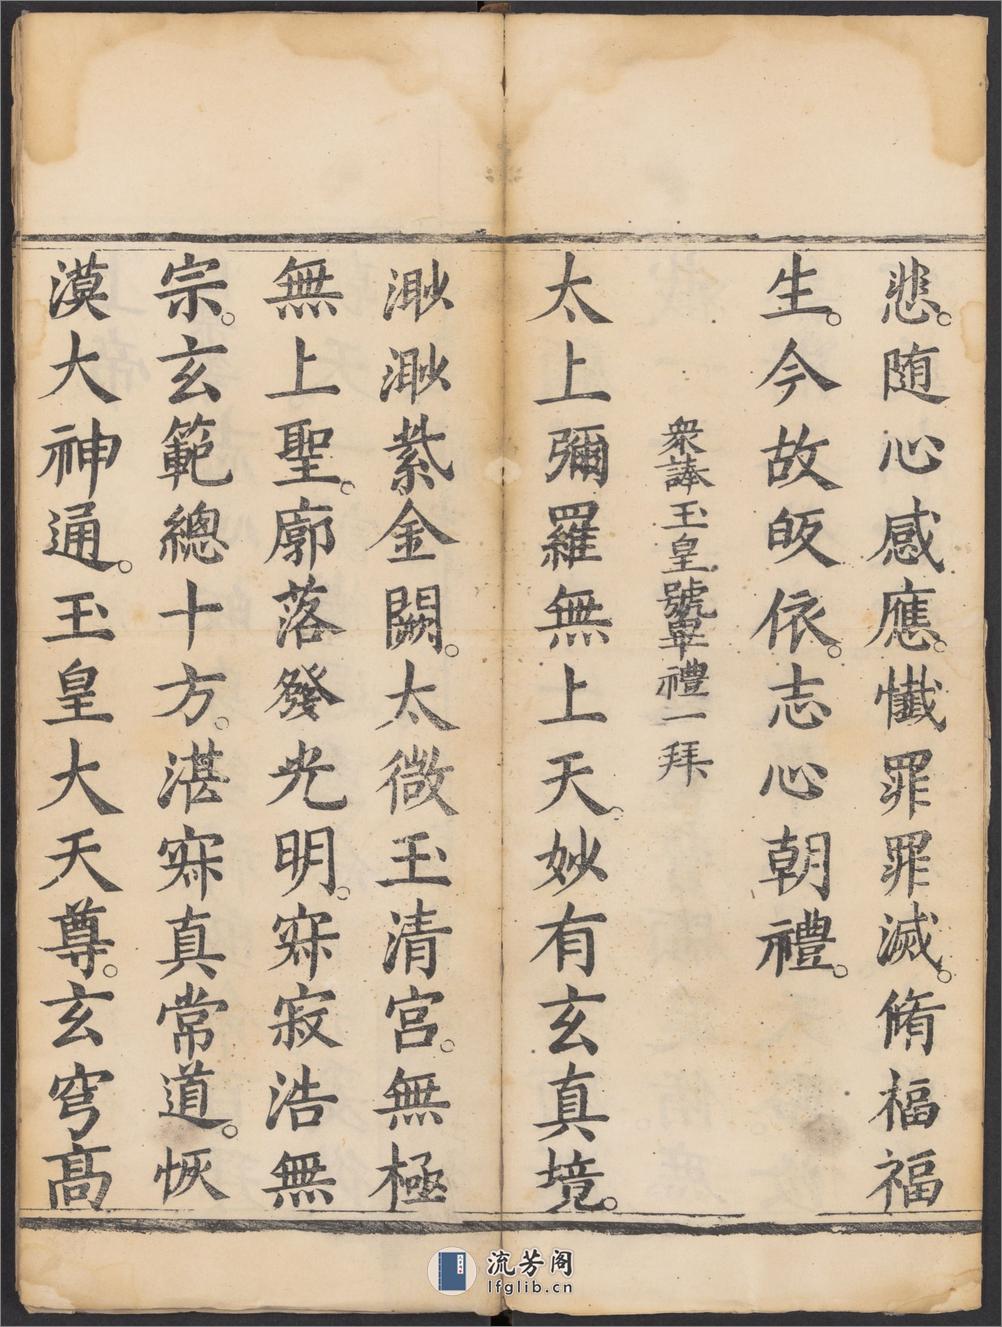 悲。随心感應。懺罪罪滅。脩福福
生。今故皈依。志心朝禮。
衆諱玉皇號畢禮一拜
太上彌羅無上天。妙有玄真境。
渺渺紫金闕。太微玉清宮。無極
無上聖。廓落發光明。寂寂浩無
宗。玄範總十方。湛寂真常道。恢
漠大神通。玉皇大天尊。玄穹高
流芳阁
lfglib.cn